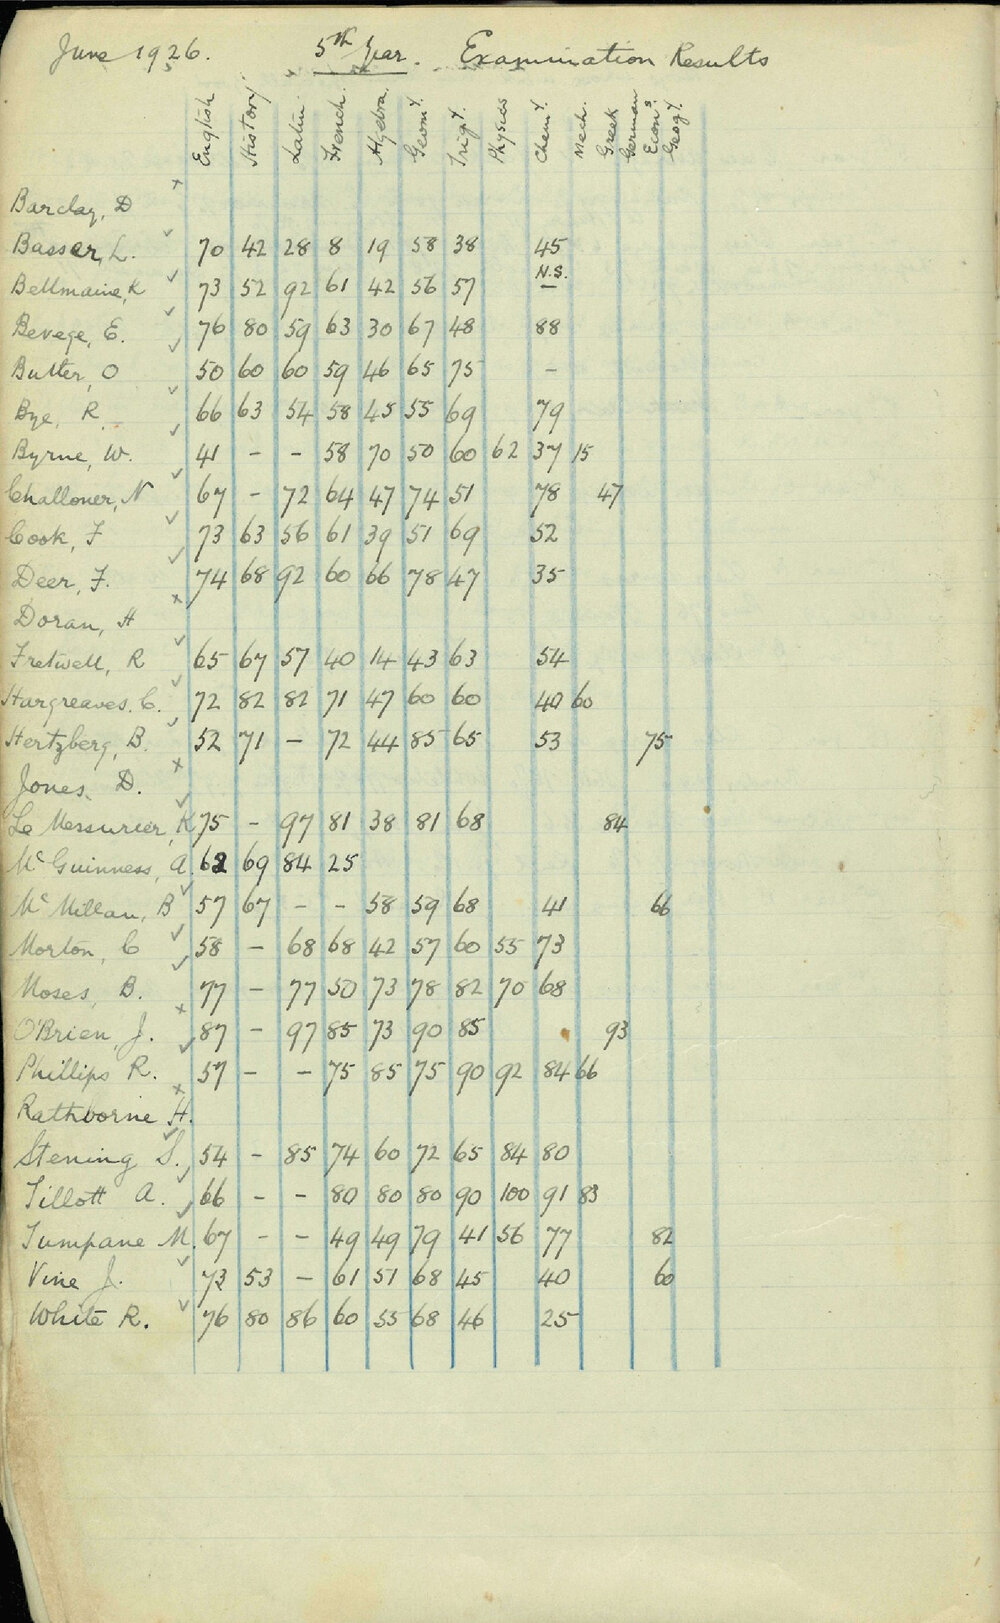 June 1926. 5th Year. Examination Results
English History Latin French. Algebra. Geomy. Trigy. Physics Chemy. Mech. Greek German Econs. Geogy.
Barclay, D x
Basser, L. ✓ 70 42 28 8 19 58 38 45
Bellmaine, K ✓ 73 52 92 61 42 56 57 N.S.
Bevege, E. ✓ 76 80 59 63 30 67 48 88
Butler, O ✓ 50 60 60 59 46 65 75 -
Bye, R. ✓ 66 63 54 58 45 55 69 79
Byrne, W. ✓ 41 - - 58 70 50 60 62 37 15
Challoner, N ✓ 67 - 72 64 47 74 51 78 47
Cook, F ✓ 73 63 56 61 39 51 69 52
Deer, F. ✓ 74 68 92 60 66 78 47 35
Doran, H x
Fretwell, R ✓ 65 67 57 40 14 43 63 54
Hargreaves. C. ✓ 72 82 82 71 47 60 60 40 60
Hertzberg, B. ✓ 52 71 - 72 44 85 65 53 75
Jones. D. x
Le Messurier, K ✓ 75 - 97 81 38 81 68 84
Mc Guinness, A. 62 69 84 25
Mc Millan, B ✓ 57 67 - - 58 59 68 41 66
Morton, C ✓ 58 - 68 68 42 57 60 55 73
Moses, B. ✓ 77 - 77 50 73 78 82 70 68
O'Brien, J. x 87 - 97 85 73 90 85 93
Phillips R. ✓ 57 - - 75 85 75 90 92 84 66
Rathborne H. x
Stening S. ✓ 54 - 85 74 60 72 65 84 80
Tillott A. ✓ 66 - - 80 80 80 90 100 91 83
Tumpane M. ✓ 67 - - 49 49 79 41 56 77 82
Vine J. ✓ 73 53 - 61 51 68 45 40 60
White R. ✓ 76 80 86 60 55 68 46 25